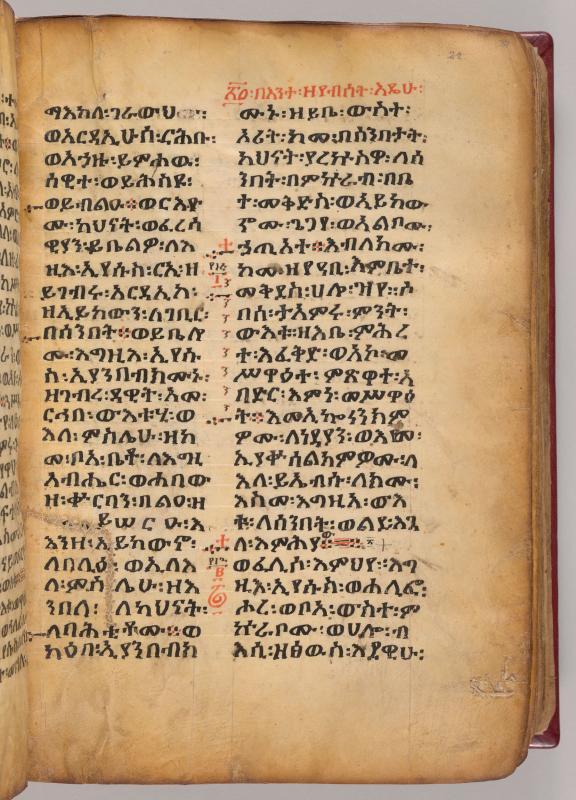 በእንተ፡ዘየብሰት፡እዴሁ፡
24
ማእከለ፡ገራውህ
ወአርዳኢሁሰ፡ርሕቡ፡
ወአኀዙ፡ይምሐው፡
ሰዊተ፡ወይሕስዩ፡
ወይብልዑ። ወርእዮ
ሙ፡ካህናት፡ወፈሪሳ
ዊያን፡ይቤልዎ፡ለእ
ዚእ፡ኢየሱስ፡ርኢ፡ዘ
ይገብሩ፡አርዳኢከ፡
ዘኢይከውን፡ለገቢር፡
በሰንበት። ወይቤሎ
ሙ፡እግዚእ፡ኢየሱ
ስ፡ኢያንበብክሙኑ፡
ዘገብረ፡ዳዊት፡አመ፡
ርኅበ፡ውእቱሂ፡ወ
እለ፡ምስሌሁ፡ዘከ
መ፡ቦአ፡ቤቶ፡ለእግዚ
አብሔር፡ወሐባው
ዘ፡ቍርባን፡በልዑ፡ዘ
ይሠርዑ፡አ
እንዘ፡ኢይከውኖ፡
ለበሊዕ፡ወኢለእ
ለ፡ምስሌሁ፡ዘእ
ንበለ፡ ለካህናት፡
ለባሕቲቶሙ። ወ
ካዕበ፡ኢያንበብክ
ሙኑ፡ዘይቤ፡ውስተ፡
ኦሪት፡ከመ፡በሰንበታት፡
ካህናት፡ያረኵስዋ፡ለሰ
ንበት፡በምኵራብ፡በቤ
ተ፡መቅድስ፡ወኢይከው
ኖሙ፡ጌጋየ፡ወአልቦሙ፡
ኃጢአተ። እብለክሙ፡
ከመ፡ዘየዐቢ፡እምቤተ፡
መቅደስ፡ሀሎ፡ዝየ። ሶ
በሰ፡ተአምሩ፡ምንት፡
ውእቱ፡ዘእቤ፡ምሕረ
ተ፡እፈቅድ፡ወአኮ፡መ
ሥዋዕተ፡ምጽዋተ፡አ
በድር፡እምነ፡መሥዋዕ
ት። እመኢኰነንክም
ዎሙ፡ለነዳያን፡ወእመ፡
ኢያቍሰልክምዎሙ፡ለ
እለ፡ይኤብሱ፡ለክሙ፡
እስመ፡እግዚአ፡ውእ
ቱ፡ለሰንበት፡ወልደ፡እጓ
ለ፡እምሕያው።
ወፈሊሶ፡እምህየ፡እግ
ዚእ፡ኢየሱስ፡ወሐሊፎ፡
ሖረ፡ወቦአ፡ውስተ፡ም
ኵራቦሙ፡ወሀሎ፡ብ
እሲ፡ዘፅዉስ፡እደዊሁ፡